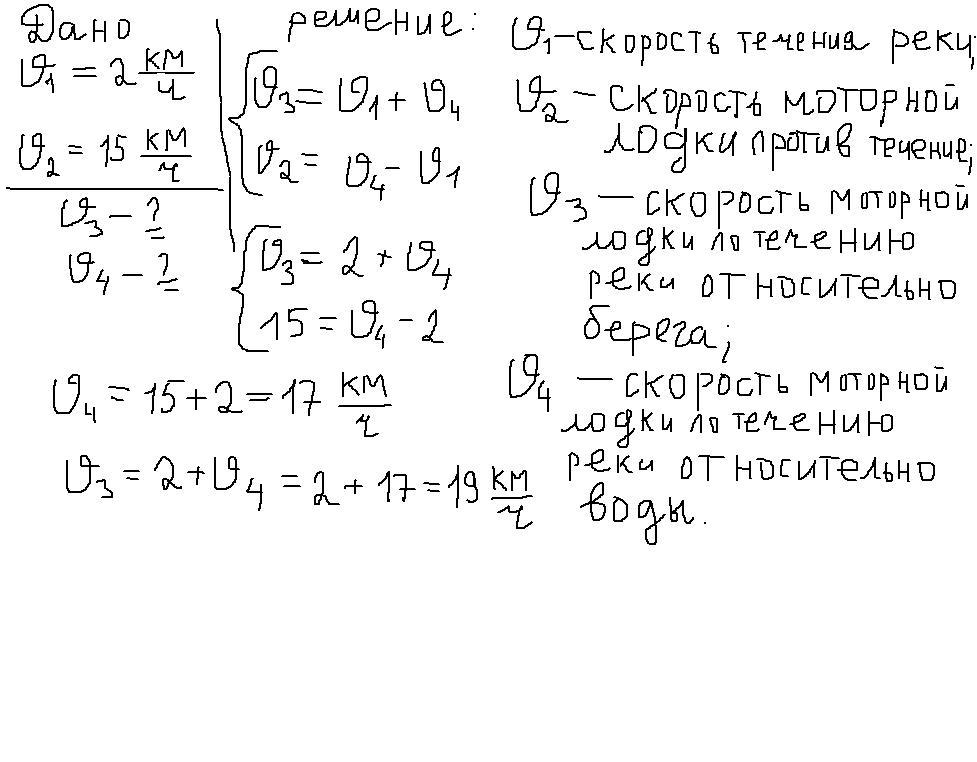 Дано
ϑ₁ = 2 км/ч
ϑ₂ = 15 км/ч
ϑ₃ – ?
ϑ₄ – ?
решение:
ϑ₃ = ϑ₁ + ϑ₄
ϑ₂ = ϑ₄ – ϑ₁
ϑ₃ = 2 + ϑ₄
15 = ϑ₄ – 2
ϑ₄ = 15 + 2 = 17 км/ч
ϑ₃ = 2 + ϑ₄ = 2 + 17 = 19 км/ч
ϑ₁ – скорость течения реки;
ϑ₂ – скорость моторной
лодки против течение;
ϑ₃ – скорость моторной
лодки по течению
реки относительно
берега;
ϑ₄ – скорость моторной
лодки по течению
реки относительно
воды.